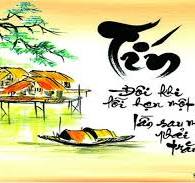 Tín
Đôi khi
lỗi hẹn một
lần sau
phải